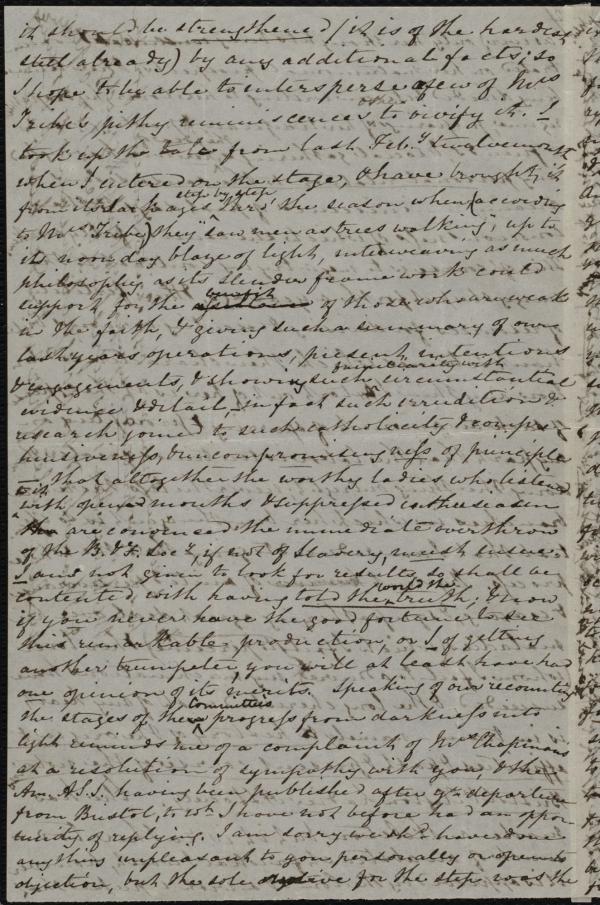 it should be strengthened (it is of the hardest
steel already) by any additional facts; so
I hope to be able to intersperse a few of Mrs
Tribe's pithy reminiscences, to vivify it. I
took up the tale from last Feby twelvemonth
when I entered on the stage, & have brought it
from its dark ages step by step thro' the season when (according
to Mrs Tribe) they "saw men as trees walking", up to
its noon day blaze of light, interweaving as much
philosophy as its slender frame work could
support for the benefit of those who are weak
in the faith, & giving such a summary of our
last years operations, present intentions
& engagements, & showing such familiarity with circumstantial
evidence & detail, in fact such erudition &
research joined to such catholicity & compre-
hensiveness, & uncompromisingness of principle
— that altogether the worthy ladies who listened to it
with opened mouths & suppressed enthusiasm
are convinced the immediate overthrow
of the B. & F. Socy, if not of Slavery, must ensue.
I am not given to look for results, so shall be
contented with having told the world the truth; & now
if you never have the good fortune to see
this remarkable production, or I of getting
another trumpeter, you will at least have had
one opinion of its merits. Speaking of our recounting
the stages of the Committees progress from darkness into
light reminds me of a complaint of Mrs Chapman's
at a resolution of sympathy with you, & the
Am. A.S.S. having been published after yr departure
from Bristol, to wh I have not before had an oppor
tunity of replying. I am sorry we shd have done
anything unpleasant to you personally or open to
objection, but the sole motive for the step was the